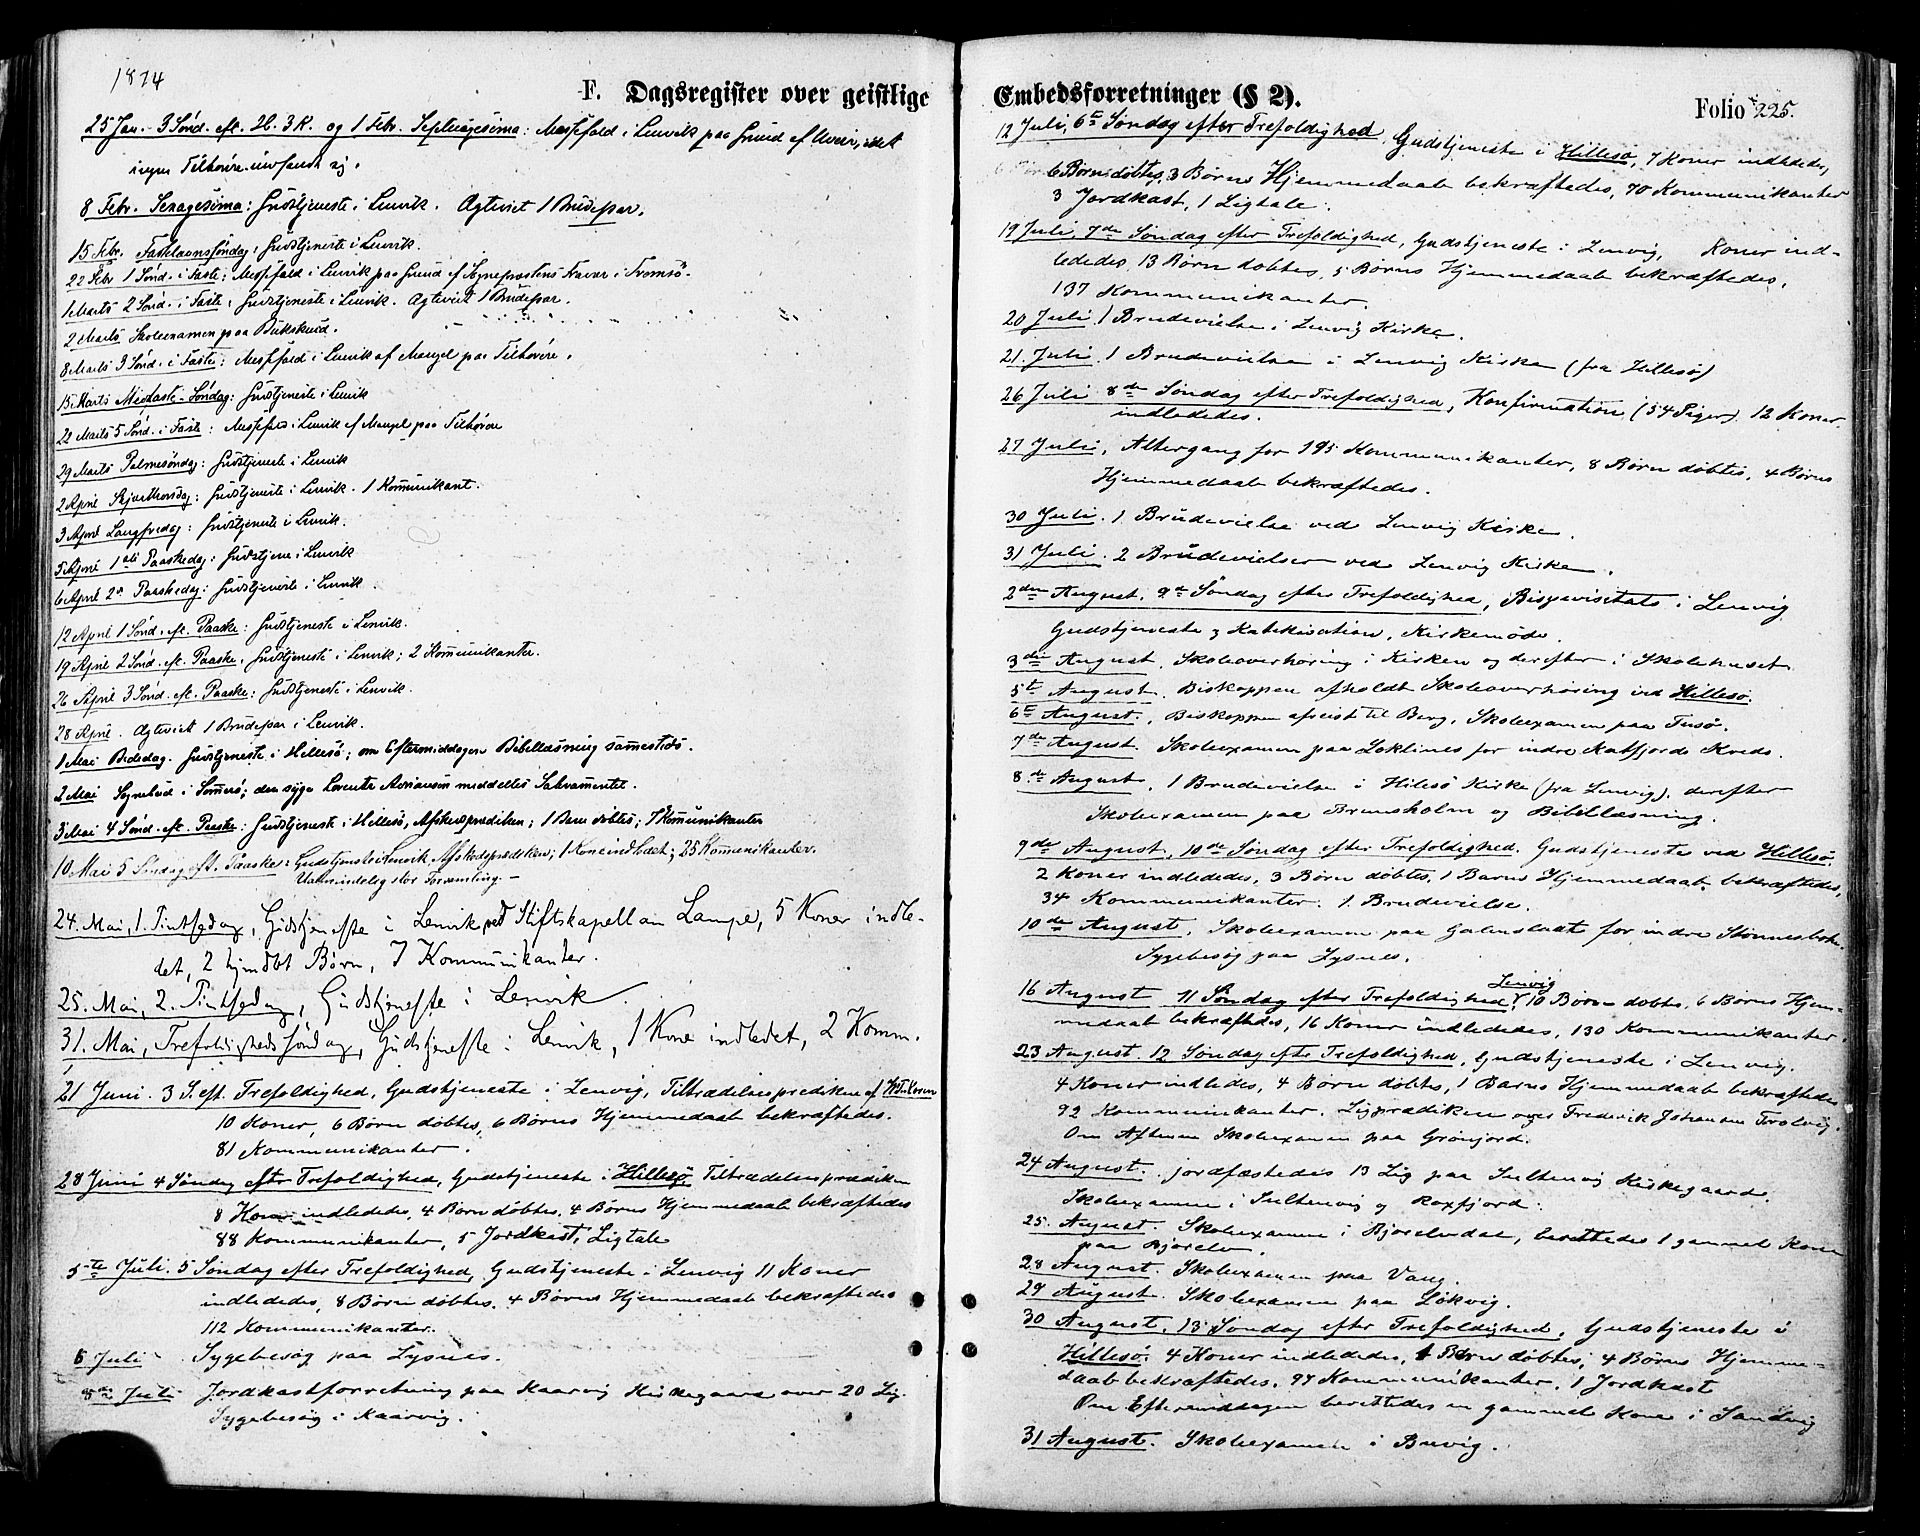 1874
F. Dagsregister over geistlige
25 Jan. 3 Sønd. eft. H. 3 K. og 1 Febr. Septuagesima: Messefald i Lenvik paa Grund af Uveir, idet
ingen Tilhørere indfandt sig.
8 Febr. Sexagesima: Gudstjeneste i Lenvik. Ægteviet 1 Brudepar.
15 Febr. Fastelavnssøndag: Gudstjeneste i Lenvik.
22 Febr 1 Sønd. i Faste: Messefald i Lenvik paa Grund af Sogneprestens Fravær i Tromsø.
1 Marts 2 Sønd. i Faste: Gudstjeneste i Lenvik. Ægteviet 1 Brudepar.
2 Marts Skoleexamen paa
8 Marts 3 Sønd. i Faste: Messefald i Lenvik af Mangel paa Tilhørere.
15 Marts Midfaste-Søndag: Gudstjeneste i Lenvik
22 Marts 5 Sønd. i Faste: Messefald i Lenvik af Mangel paa Tilhørere
29 Marts Palmesøndag: Gudstjeneste i Lenvik
2 April Skjærthorsdag: Gudstjeneste i Lenvik. 1 Kommunikant.
3 April Langfredag: Gudstjeneste i Lenvik.
5 April 1ste Paaskedag: Gudstjene i Lenvik
6 April 2n Paaskedag: Gudstjeneste i Lenvik.
12 April 1 Sønd. eft. Paaske: Gudstjeneste i Lenvik.
19 April 2 Sønd. eft. Paaske, Gudstjeneste i Lenvik; 2 Kommunikanter.
26 April 3 Sønd. eft. Paaske: Gudstjeneste i Lenvik.
28 April. Ægteviet 1 Brudepar i Lenvik.
1 Mai Bededag. Gudstjeneste i Hillesø; om Eftermiddagen Bibellæsning sammesteds.
2 Mai Sognebud i Sommerø; den syge Lorents Adriansen meddeltes Sakramentet.
3 Mai 4 Sønd. eft. Paaske: Gudstjeneste i Hillesø, Afskedsprædiken; 1 Barn døbtes; 7 Kommunikanter
10 Mai 5 Søndag eft. Paaske: Gudstjeneste i Lenvik, Afskedsprædiken; 1 Kone indledet; 25 Kommunikanter.
Ualmindelig stor Forsamling. -
24. Mai, 1. Pintsedag, Gudstjeneste i Lenvik ved Stiftskapellan Lampe, 5 Koner indle-
det, 2 hjmdbt Børn, 7 Kommunikanter.
25. Mai, 2. Pintsedag, Gudstjeneste i Lenvik.
31. Mai, Trefoldighedssøndag, Gudstjeneste i Lenvik, 1 Kone indledet, 2 Komm.
21 Juni. 3 S. eft. Trefoldighed, Gudstjeneste i Lenvig, Tiltrædelsesprediken af
10 Koner, 6 Børn døbtes, 6 Børns Hjemmedaab bekræftedes.
81 Kommunikanter.
28 Juni 4 Søndag efter Trefoldighed, Gudstjeneste i Hillesø, Tiltrædelsesprædiken
8 Koner indlededes, 4 Børn døbtes, 4 Børns Hjemmedaab bekræftedes
88 Kommunikanter, 5 Jordkast, Ligtale
5te Juli. 5 Søndag efter Trefoldighed, Gudstjeneste i Lenvig 11 Koner
indlededes, 8 Børn døbtes, 4 Børns Hjemmedaab bekræftedes
112 Kommunikanter.
6 Juli Sygebesøg paa Lysnes.
8de Juli Jordkastforretning paa Kaarvig Kirkegaard over 20 Lig.
Sygebesøg i Kaarvig.
Embedsforretninger (§ 2).
Folio 225.
12 Juli, 6te Søndag efter Trefoldighed, Gudstjeneste i Hillesø, 7 Koner indlededes,
6 Børn døbtes, 3 Børns Hjemmedaab bekræftedes, 70 Kommunikanter
3 Jordkast, 1 Ligtale.
19 Juli, 7de Søndag efter Trefoldighed, Gudstjeneste i Lenvig, Koner ind-
lededes, 13 Børn døbtes, 5 Børns Hjemmedaab bekræftedes,
137 Kommunikanter.
20 Juli 1 Brudevielse i Lenvig Kirke.
21. Juli. 1 Brudevielse i Lenvig Kirke (fra Hillesø)
26 Juli 8de Søndag efter Trefoldighed, Konfirmation (54 Piger). 12 Koner
indlededes.
27 Juli, Altergang for 195 Kommunikanter, 8 Børn døbtes, 4 Børns
Hjemmedaab bekræftedes.
30 Juli. 1 Brudevielse ved Lenvig Kirke.
31 Juli. 2 Brudevielser ved Lenvig Kirke.
2den August. 9de Søndag efter Trefoldighed, Bispevisitats i Lenvig
Gudstjeneste og Katekisation, Kirkemøde.
3die August. Skoleoverhøring i Kirken og derefter i Skolehuset
5te August. Biskoppen afholdt Skoleoverhøring ved Hillesø.
6te August. Biskoppen afreist til Berg. Skoleexamen paa Tusø.
7de August. Skoleexamen paa for indre Katfjords Kreds.
8de August. 1 Brudevielse i Hilesø Kirke (fra Lenvig), derefter
Skoleexamen paa Brensholm og Bibellæsning.
9de August, 10de Søndag efter Trefoldighed. Gudstjeneste ved Hillesø.
2 Koner indlededes, 3 Børn døbtes, 1 Barns Hjemmedaab bekræftedes,
34 Kommunikanter. 1 Brudevielse.
10de August, Skoleexamen paa for indre
Sygebesøg paa Lysnes.
16 August 11 Søndag efter Trefoldighed, Lenvig 10 Børn døbtes, 6 Børns Hjem-
medaab bekræftedes, 16 Koner indlededes, 130 Kommunikanter.
23 August. 12 Søndag efter Trefoldighed, Gudstjeneste i Lenvig.
4 Koner indledes, 4 Børn døbtes, 1 Barns Hjemmedaab bekræftedes
92 Kommunikanter. Ligprædiken over Frederik Johansen
Om Aftenen Skoleexamen paa Grønjord.
24 August. jordfæstedes 13 Lig paa Kirkegaard.
Skoleexamen i og
25. August. Skoleexamen i Bjorelvdal, berettedes 1 gammel Kone
paa Bjorelv.
28 August. Skoleexamen paa Vang.
29 August. Skoleexamen paa Løkvig.
30 August. 13 Søndag efter Trefoldighed. Gudstjeneste i
Hillesø. 4 Koner indlededes, Børn døbtes, 4 Børns Hjemme-
daab bekræftedes. 97 Kommunikanter. 1 Jordkast
Om Eftermiddagen berettedes en gammel Kone i Sandvig
31 August. Skoleexamen i Buvig.